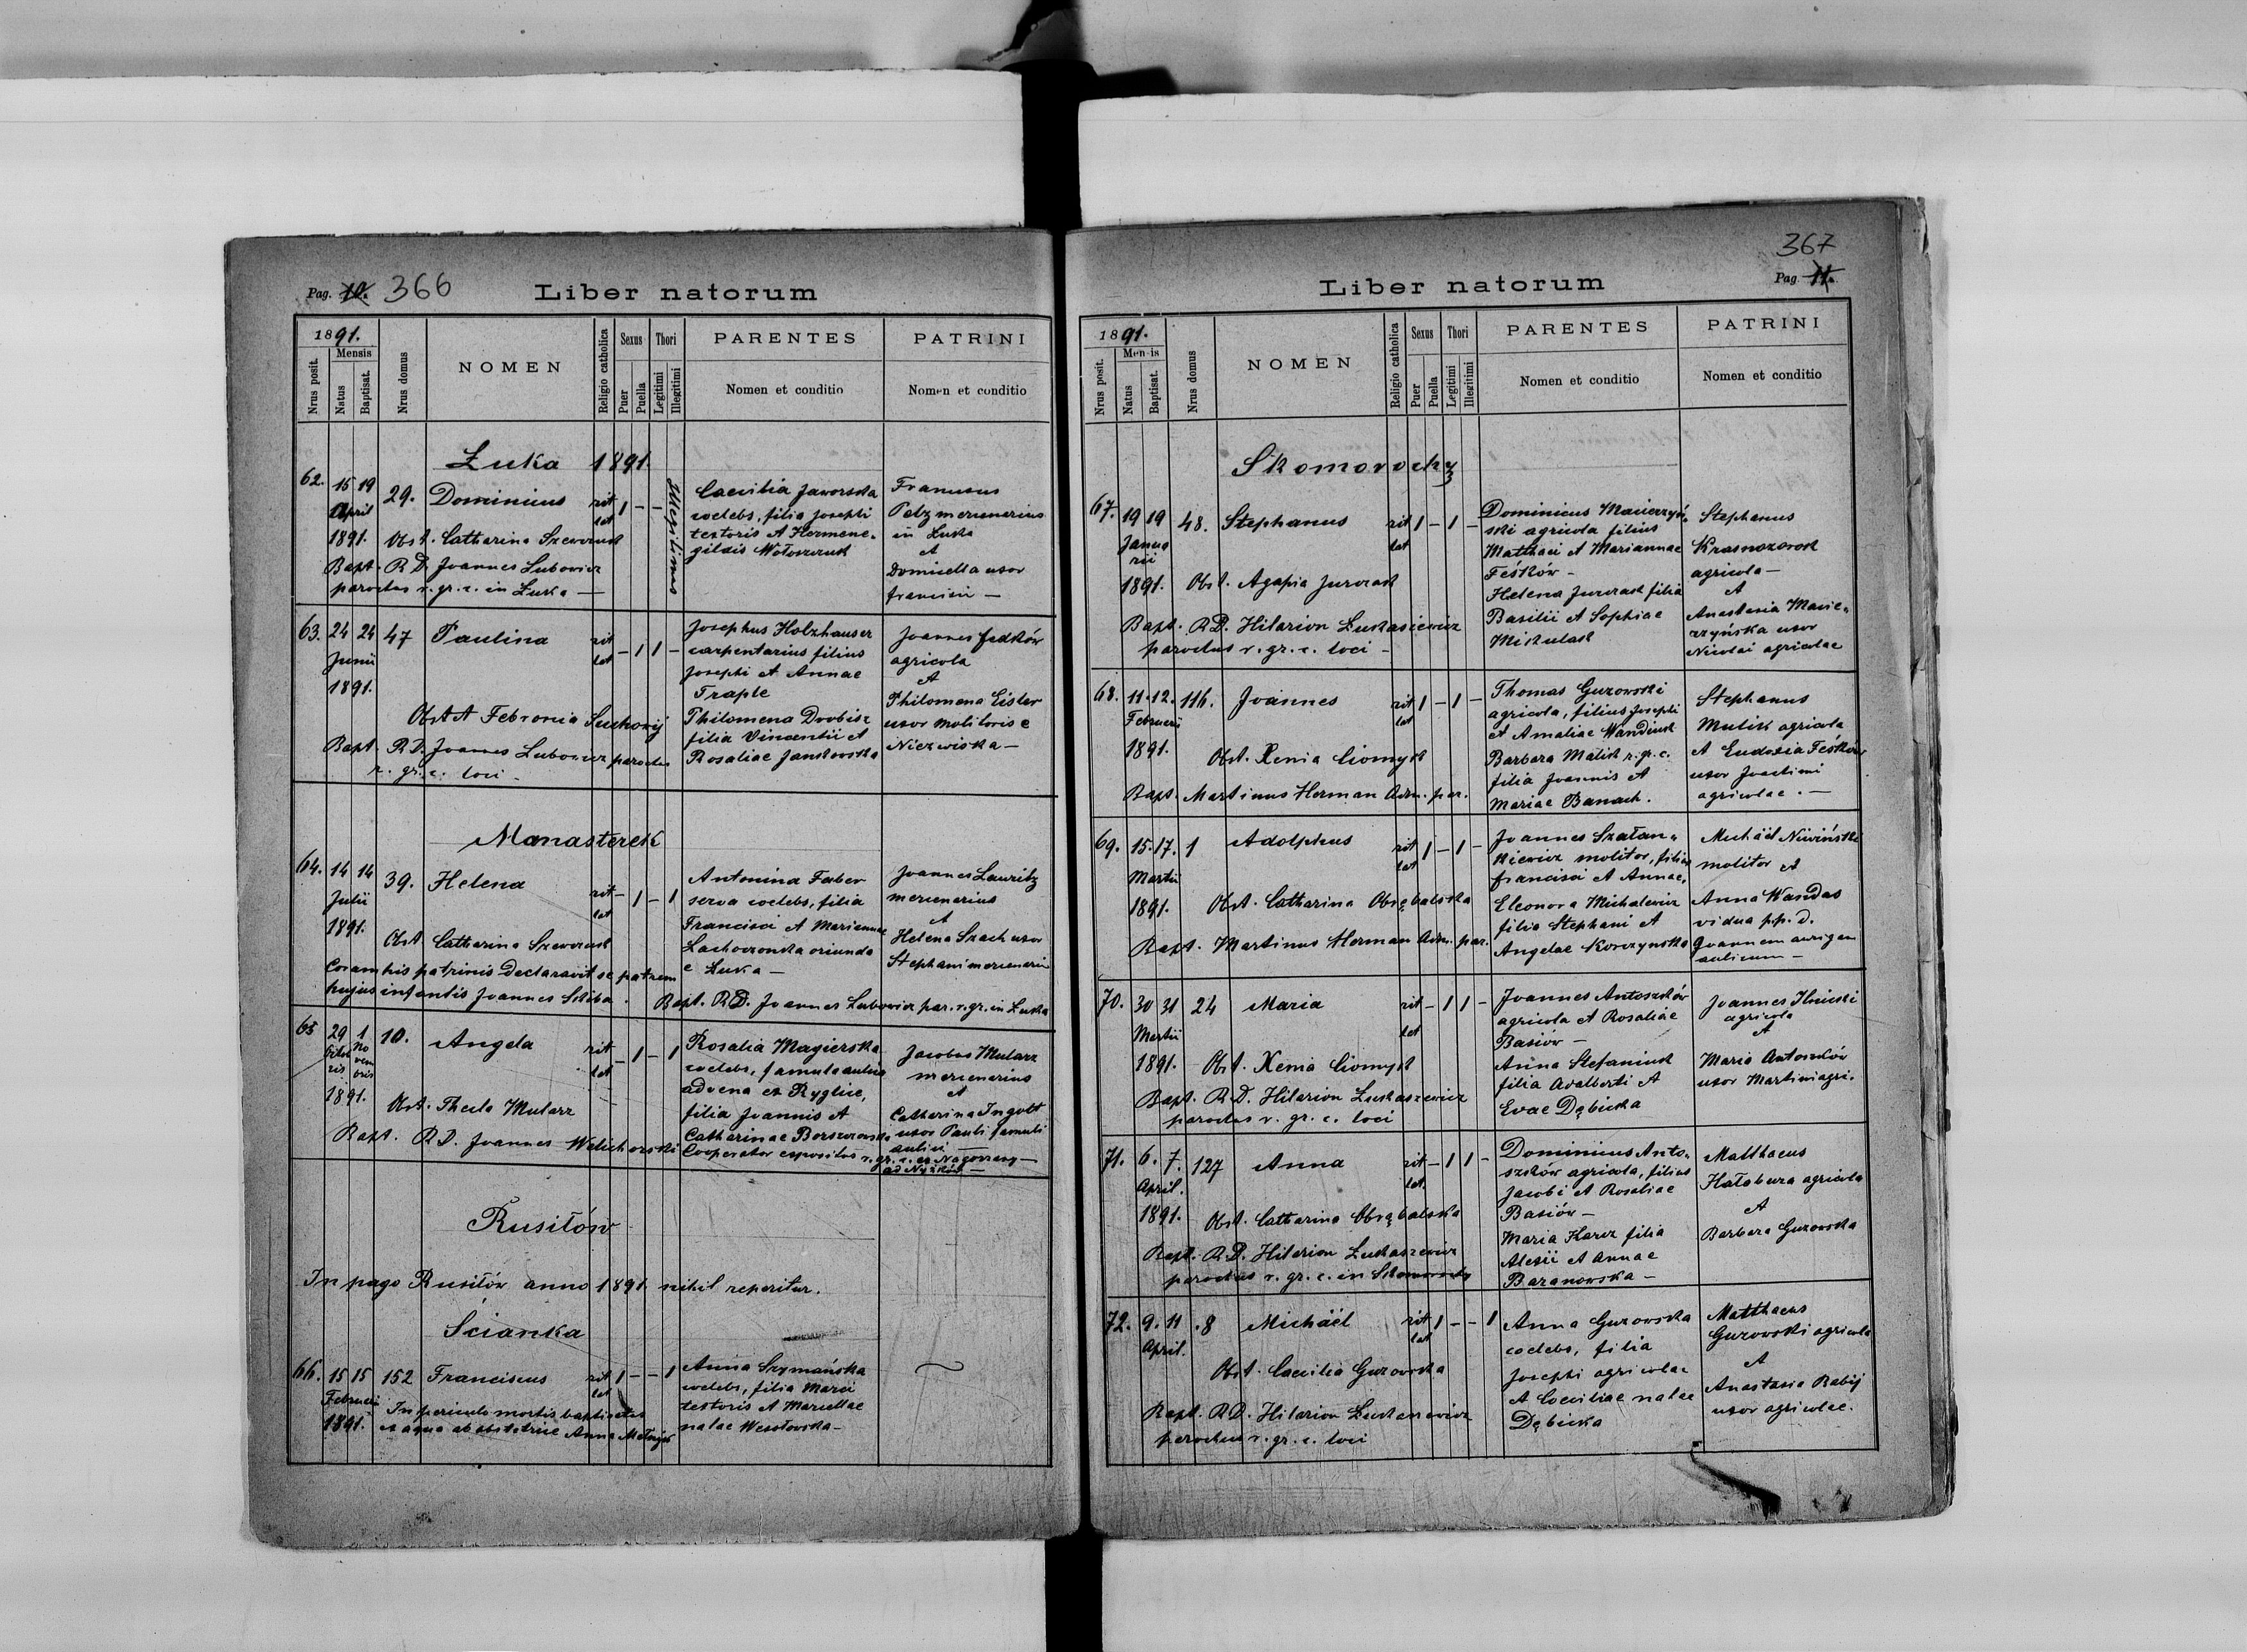 Pag. 10. 366
Liber natorum
1891.
Mensis
Nrus posit.
Natus
Baptisat.
Nrus domus
NOMEN
Religio catholica
Sexus
Puer
Puella
Thori
Legitimi
Illegitimi
PARENTES
Nomen et conditio
PATRINI
Nomen et conditio
Łuka 1891.
62. 15 19 April 1891.
29. Dominicus
rit lat 1 - -
Illegitimus
Obst. Catharina Szewczuk
Bapt. R.D. Joannes Lubowicz
parochus r. gr. c. in Łuka —
Caecilia Jaworska
coelebs, filia Josephi
textoris et Hermene-
gildis Wołoszczuk
Franciscus
mercenarius
in Łuka
et
Domicella uxor
Francisci —
63. 24 24 Junii 1891.
47 Paulina
rit lat - 1 1 -
Obst. Febronia
Bapt. R.D. Joannes Lubowicz parochus
r. gr. c. loci -
Josephus Holzhauser
carpentarius filius
Josephi et Annae
Traple
Philomena Drobisz
filia Vincentii et
Rosaliae Jankowska
Joannes Fedków
agricola
et
Philomena Eisler
uxor molitoris e
Niezwiska —
Monasterek
64. 14 14 Julii 1891.
39. Helena
rit lat - 1 - 1
Obst. Catharina Szewczuk
Coram his patrinis declaravit se patrem
hujus infantis Joannes Skiba.
Bapt. R.D. Joannes Lubowicz par. r. gr. in Łuka
Antonina Faber
serva coelebs, filia
Francisci et Mariannae
oriunda
e Łuka —
Joannes Lauritz
mercenarius
et
Helena Szach uxor
Stephani mercenarii
65 29 Octobris 1 Novembris 1891.
10. Angela
rit lat - 1 - 1
Obst. Thecla Mularz
Bapt. R.D. Joannes Welichorski Cooperator expositus r. gr. c.
Rosalia Magierska
coelebs, famula aulica
advena ex Ryglice,
filia Joannis et
Catharinae
Jacobus Mularz
mercenarius
et
Catharina Ingolt
uxor Pauli famuli
aulici —
Rusiłów
In pago Rusiłów anno 1891. nihil reperitur.
Ścianka
66. 15 15 Februarii 1891.
152 Franciscus
rit lat 1 - - 1
In periculo mortis baptisatus
ex aqua ab obstetrice Anna
Anna Szymańska
coelebs, filia Marci
textoris et Marcellae
natae Wesołowska —
367
Pag. 11.
Liber natorum
1891.
Mensis
Nrus posit.
Natus
Baptisat.
Nrus domus
NOMEN
Religio catholica
Sexus
Puer
Puella
Thori
Legitimi
Illegitimi
PARENTES
Nomen et conditio
PATRINI
Nomen et conditio
Skomorochy
67. 19 19 Januarii 1891.
48. Stephanus
rit lat 1 - 1 -
Obst. Agapia Jurczak
Bapt. R.D. Hilarion Łukasiewicz
parochus r. gr. c. loci -
Dominicus Macierzyń-
ski agricola filius
Matthaei et Mariannae
Feśków -
Helena Jurczak filia
Basilii et Sophiae
Mikulak
Stephanus
Krasnozorok
agricola —
et
Anastasia Macie-
rzyńska uxor
Nicolai agricolae
68. 11. 12. Februarii 1891.
116. Joannes
rit lat 1 - 1 -
Obst. Xenia Ciomyk
Bapt. Martinus Herman Adm. par.
Thomas Guzowski
agricola, filius Josephi
et Amaliae Wandiuk
Barbara Malik r. gr. c.
filia Joannis et
Mariae Banach.
Stephanus
Mulik agricola
et Eudoxia Feśków
uxor Joachimi
agricolae. —
69. 15. 17. Martii 1891.
1 Adolphus
rit lat 1 - 1 -
Obst. Catharina Obrębalska
Bapt. Martinus Herman Adm. par.
Joannes Szałan-
kiewicz molitor, filius
Francisci et Annae,
Eleonora Michalewicz
filia Stephani et
Angelae Korczynska
Michäel Niwiński
molitor et
Anna Wandas
vidua p.p. d.
Joannem aurigam
aulicum —
70. 30 31 Martii 1891.
24 Maria
rit lat - 1 1 -
Obst. Xenia Ciomyk
Bapt. R.D. Hilarion Łukaszewicz
parochus r. gr. c. loci
Joannes Antoszków
agricola et Rosaliae
Basiów —
Anna Stefaniuk
filia Adalberti et
Evae Dębicka
Joannes Ilnicki
agricola
et
Maria Antoszków
uxor Martini agri.
71. 6. 7. April. 1891.
127 Anna
rit lat. - 1 1 -
Obst. Catharina Obrębalska
Bapt. R.D. Hilarion Łukaszewicz
parochus r. gr. c. in Skomorochy
Dominicus Anto-
szków agricola, filius
Jacobi et Rosaliae
Basiów —
Maria Karcz filia
Alexii et Annae
Baranowska —
Matthaeus
Hałabura agricola
et
Barbara Guzowska
72. 9. 11 April.
8 Michäel
rit lat 1 - - 1
Obst. Caecilia Guzowska
Bapt. R.D. Hilarion Łukasiewicz
parochus r. gr. c. loci
Anna Guzowska
coelebs, filia
Josephi agricolae
et Caeciliae natae
Dębicka
Matthaeus
Guzowski agricola
et
Anastasia Babij
uxor agricolae.